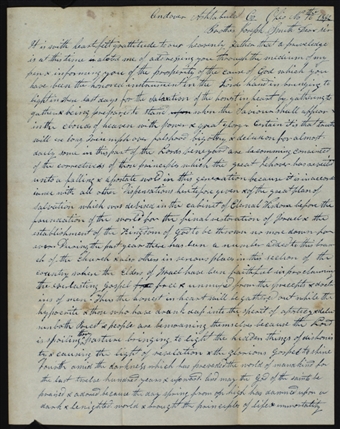 Andover Ashtabula Co. Ohio
Brother Joseph Smith Dear Sir
It is with heartfelt gratitude to our heavenly father that a privelege
is at this time allowed me of addressing you through the medium of my
pen & informing you of the prosperity of the cause of God which you
have been the honored instrument in the Lords hand in bringing to
light in these last days for the salvation of the honest in heart by gathering
together & being prepared to stand when the Saviour shall appear
in the clouds of heaven with power & great glory & certain it is that truth
will ere long triumph over priestcraft bigotry & delusion for almost
daily some in this part of the Lords vineyard are becoming convinced
of the correctness of those principles which the great Jehovah has
unto a fallen & apostate world in this generation because it is in accord
iance with all other Dispensations heretofore given & of the great plan of
salvation which was devised in the cabinet of Eternal Wisdom before the
foundation of the world for the final restoration of Israel & the
establishment of the Kingdom of God to be thrown no more down for
ever During the past year there has been a number added to this branch
of the Church & also others in various places in this section of the
country where the Elders of Israel have been faithful in proclaiming
the everlasting Gospel free & unmixed from the precepts &
of men. Thus the honest in heart will be gathered out while the
hypocrite & those who have drank deep into the spirit of apostacy
both priest & people are bemoaning themselves because the Lord
is spoiling their pasture bringing to light the hidden things of dishones
ty & causing the light of revelation & the glorious Gospel to shine
forth amid the darkness which has pervaded the world of mankind for
the last twelve hundred years & upwards and may the God of the
praised & adored because the day spring from on high has dawned upon a
dark & benighted world & brought the principles of life & immortality